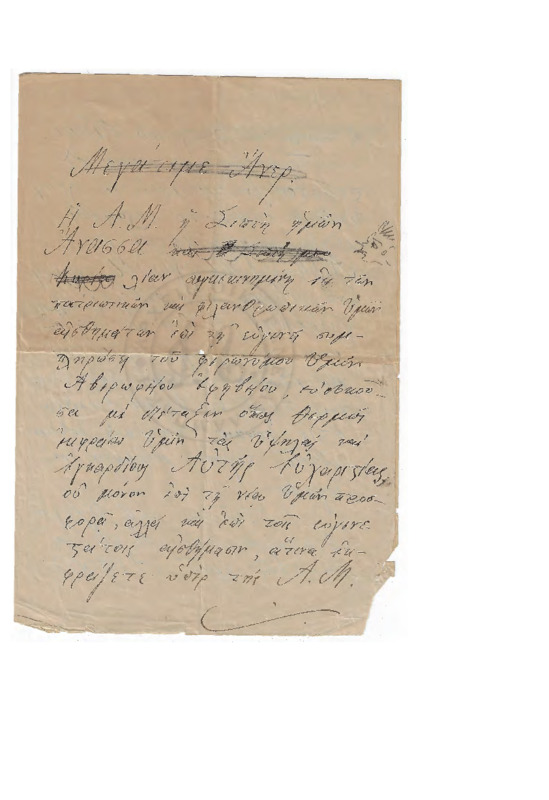 Μεγάτιμε Ἄνερ.
Ἡ Α. Μ. ἡ Σεπτὴ ἡμῶν
Ἄνασσα
λίαν συγκεκινημένη ἐκ τῶν
πατριωτικῶν καὶ φιλανθρωπικῶν Ὑμῶν
αἰσθημάτων ἐπὶ τῇ εὐγενεῖ συμ-
πληρώσει τοῦ φερωνύμου Ὑμῶν
Ἀβερωφείου Ἐφηβείου, εὐδοκοῦ-
σα μὲ διέταξεν ὅπως θερμῶς
ἐκφράσω Ὑμῖν τὰς Ὑψηλὰς καὶ
ἐγκαρδίους Αὐτῆς Εὐχαριστίας
οὐ μόνον ἐπὶ τῇ νέᾳ Ὑμῶν προσ-
φορᾷ, ἀλλὰ καὶ ἐπὶ τοῖς εὐγενε
στάτοις αἰσθήμασιν, ἅτινα ἐκ-
φράζετε ὑπὲρ τῆς Α. Μ.